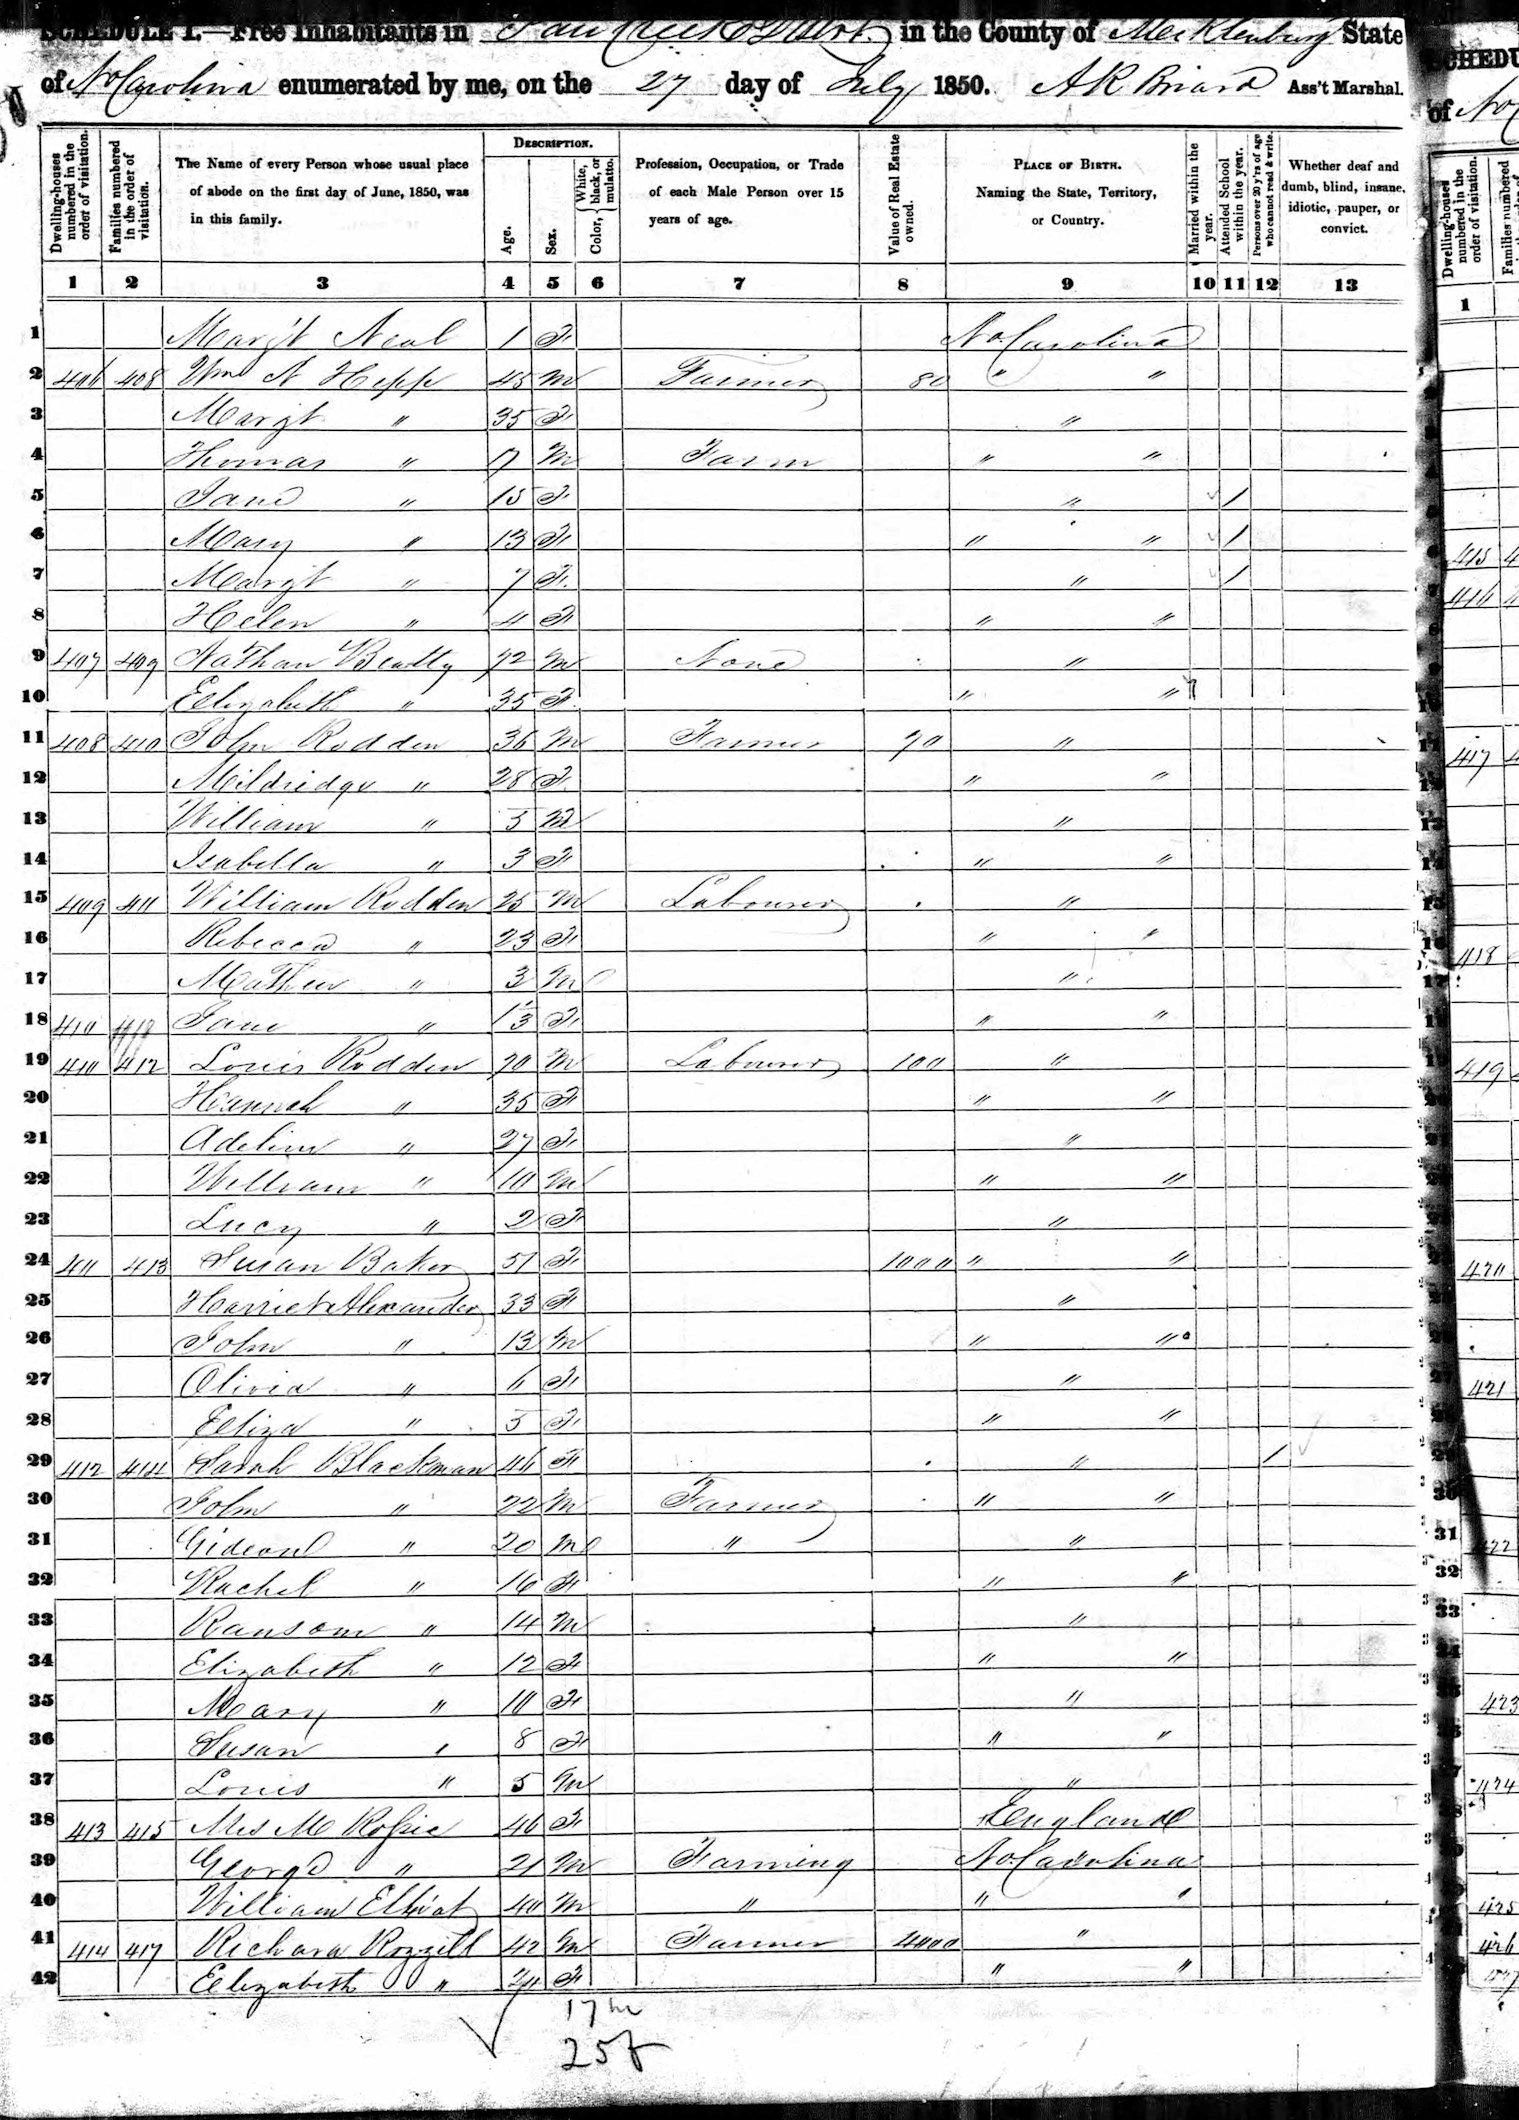 SCHEDULE I.—Free Inhabitants in Paw Creek District in the County of Mecklenburg State
of No Carolina enumerated by me, on the 27 day of July 1850. Ass't Marshal.
Dwelling-houses numbered in the order of visitation.
Families numbered in the order of visitation.
The Name of every Person whose usual place of abode on the first day of June, 1850, was in this family.
DESCRIPTION.
Age.
Sex.
Color, White, black, or mulatto.
Profession, Occupation, or Trade of each Male Person over 15 years of age.
Value of Real Estate owned.
PLACE OF BIRTH. Naming the State, Territory, or Country.
Married within the year.
Attended School within the year.
Persons over 20 y'rs of age who cannot read & write.
Whether deaf and dumb, blind, insane, idiotic, pauper, or convict.
1 2 3 4 5 6 7 8 9 10 11 12 13
1 Marg't Neal 1 F No Carolina
2 406 408 Wm N Hipp 45 M Farmer 80 " "
3 Margt " 35 F "
4 Thomas " 17 M Farm " "
5 Jane " 15 F " 1
6 Mary " 13 F " " 1
7 Margt " 7 F " 1
8 Helen " 4 F " "
9 407 409 Nathan Beatty 72 M None "
10 Elizabeth " 35 F " "
11 408 410 John Rodden 36 M Farmer 70 "
12 Mildridge " 28 F " "
13 William " 5 M "
14 Isabella " 3 F " "
15 409 411 William Rodden 25 M Labourer "
16 Rebecca " 23 F " "
17 Mathew " 3 M "
18 410 Jane " 1/3 F " "
19 410 412 Louis Rodden 70 M Labourer 100 "
20 Hannah " 35 F " "
21 Adeline " 27 F "
22 William " 10 M " "
23 Lucy " 2 F "
24 411 413 Susan Baker 51 F 1000 " "
25 Harriet Alexander 33 F "
26 John " 13 M " "
27 Olivia " 6 F "
28 Eliza " 5 F " "
29 412 414 Sarah Blackman 46 F " 1
30 John " 22 M Farmer " "
31 Gideon " 20 M " "
32 Rachel " 16 F " "
33 Ransom " 14 M "
34 Elizabeth " 12 F " "
35 Mary " 10 F "
36 Susan " 8 F " "
37 Louis " 5 M "
38 413 415 Mrs M 46 F England
39 George " 21 M Farming No Carolina
40 William Elliot 40 M " " "
41 414 417 Richard Rozzill 42 M Farmer 4000 "
42 Elizabeth " F " "
17 m
25 f
SCHEDU
of No
Dwelling-houses numbered in the order of visitation.
Families numbered
1
415
416
417
418
419
420
421
422
423
424
425
426